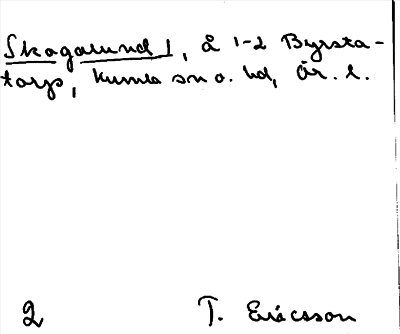 Skagalund 1, å 1-2 Byrsta-
torp, Kumla sn o. hd, Ör. l.
2 T. Ericsson